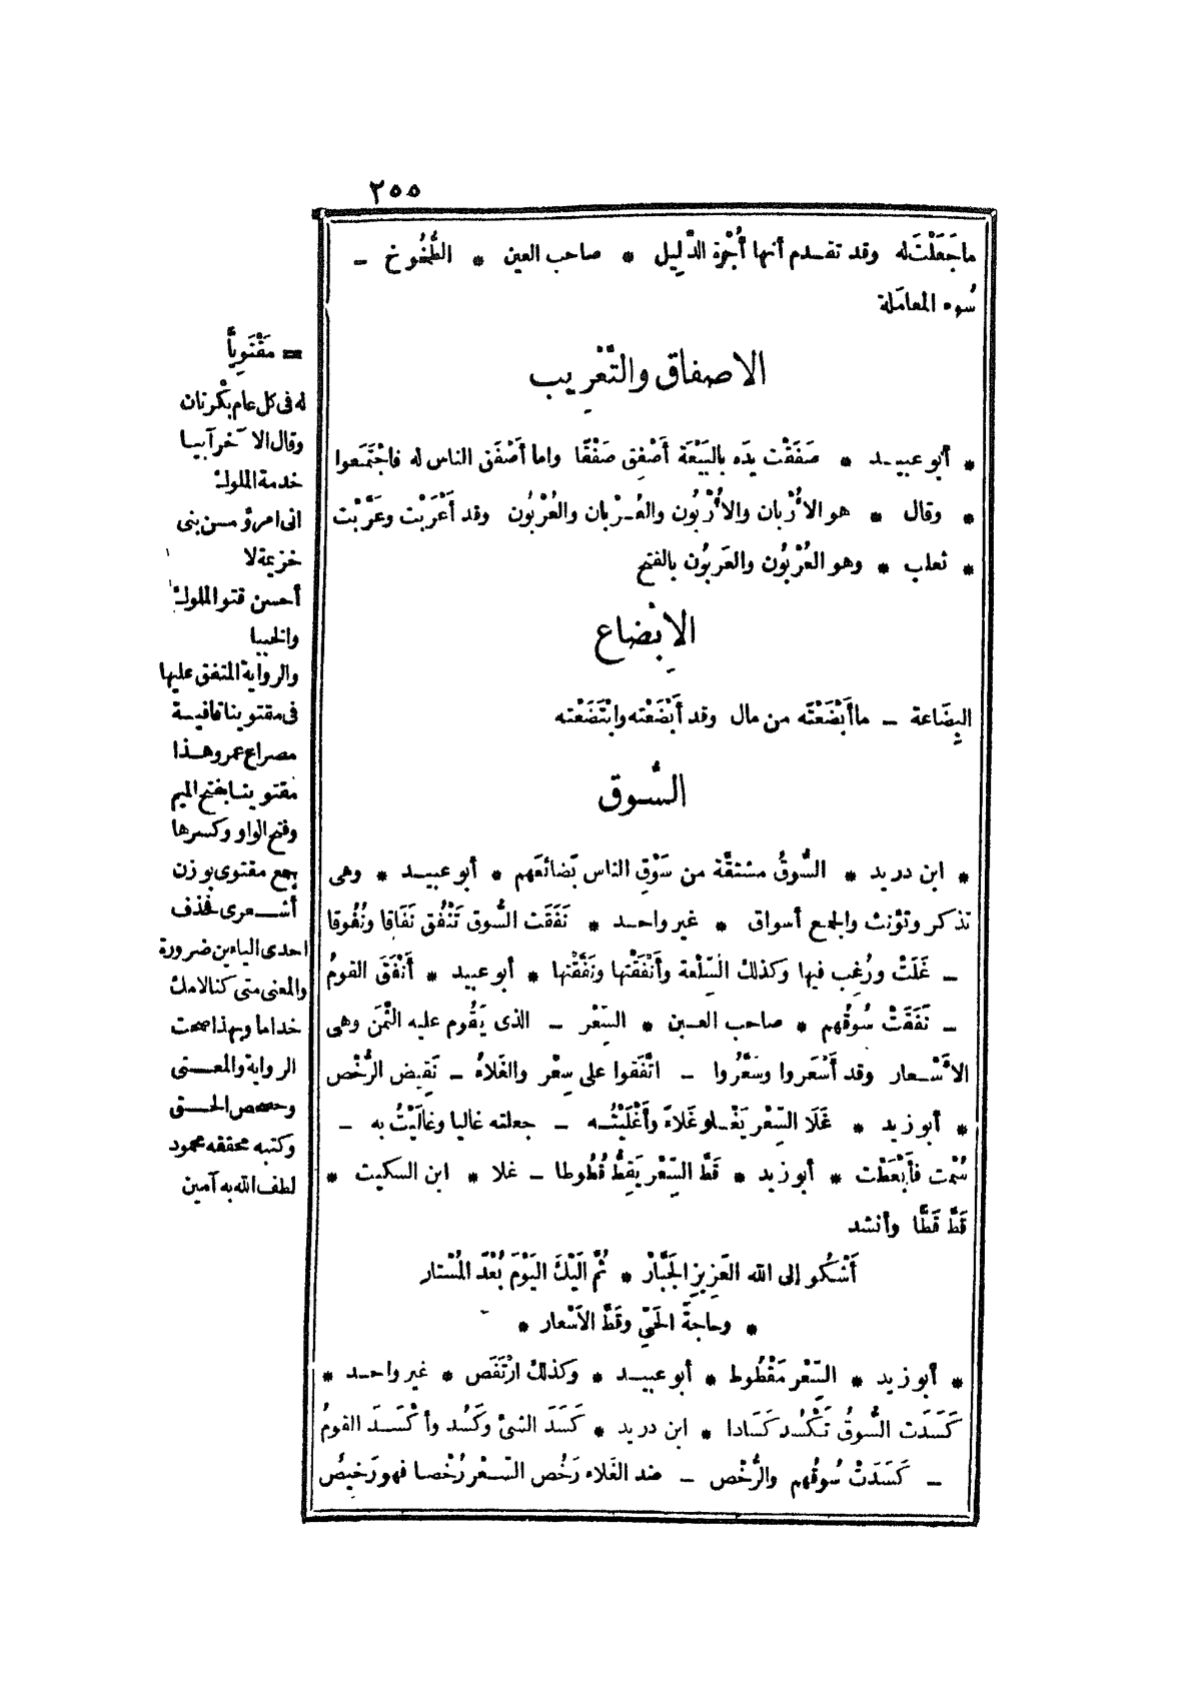 ٢٥٥
ما جَعَلْتَ له وقد تقدم أنها أُجْرة الدَّلِيل * صاحب العين * الطُّخُوخ –
سُوء المعامَلة
الاصفاق والتَّعْرِيب
* أبو عبيد * صَفَقْت يدَه بالبَيْعَة أَصْفِق صَفْقًا واما أَصْفَق الناس له فاجْتَمَعوا
* وقال * هو الأُرْبان والأُرْبُون والعُرْبان والعُرْبُون وقد أَعْرَبْت وعَرَّبْت
* ثعلب * وهو العُرْبُون والعَربُون بالفتح
الإِبْضاع
البِضَاعة – ما أَبْضَعْتَه من مال وقد أَبْضَعْته وابْتَضَعْته
السُّوق
* ابن دريد * السُّوقُ مشتقَّة من سَوْقِ الناس بَضائعَهم * أبو عبيد * وهى
تذكر وتؤنث والجمع أسواق * غير واحد * نَفَقَت السُّوق تَنْفُق نَفَاقا ونُفُوقا
– غَلَتْ ورُغِب فيها وكذلك السِّلْعة وأَنْفَقْتها ونَفَّقْتها * أبو عبيد * أَنْفَقَ القومُ
– نَفَقَتْ سُوقُهم * صاحب العين * السِّعْر – الذى يَقُوم عليه الثَّمَن وهى
الأَسْعار وقد أَسْعَروا وسَعَّرُوا – اتَّفَقوا على سِعْر والغَلاءُ – نَقِيض الرُّخْص
* أبو زيد * غَلَا السِّعْر يَغْلو غَلاءً وأَغْلَيْتُه – جعلته غاليا وغالَيْتُ به –
سُمْت فأَبْعَطْت * أبو زيد * قَطَّ السِّعْر يَقِطُّ قُطُوطا – غلا * ابن السكيت *
قَطَّ قَطًّا وأنشد
أَشْكُو إلى الله العَزِيزِ الجَبَّارْ * ثُمَّ الَيْكَ اليَوْمَ بُعْدَ المُسْتار
* وحاجةَ الحَىِّ وقَطَّ الاَسْعار *
* أبو زيد * السِّعْر مَقْطُوط * أبو عبيد * وكذلك ارْتَفَص * غير واحد *
كَسَدَت السُّوقُ تَكْسُد كَسَادا * ابن دريد * كَسَدَ الشئ وكَسُد وأَكْسَدَ القومُ
– كَسَدَتْ سُوقُهم والرُّخْص – ضد الغَلاء رَخُص السِّعْر رُخْصا فهو رَخِيصٌ
= مَقْتَوِيًّا
له فى كل عام بَكْرتان
وقال الآخر آبيا
خدمة الملوك
انى امرؤ من بنى
خزيمة لا
أحسن قتو الملوك
والخببا
والرواية المتفق عليها
فى مقتوينا قافية
مصراع عمرو هذا
مقتوينا بفتح الميم
وفتح الواو وكسرها
جمع مقتوى بوزن
أشعرى فحذف
احدى الياءين ضرورة
والمعنى متى كنا لامك
خداما وبهذا صحت
الرواية والمعنى
وحصص الحق
وكتبه محققه محمود
لطف الله به آمين